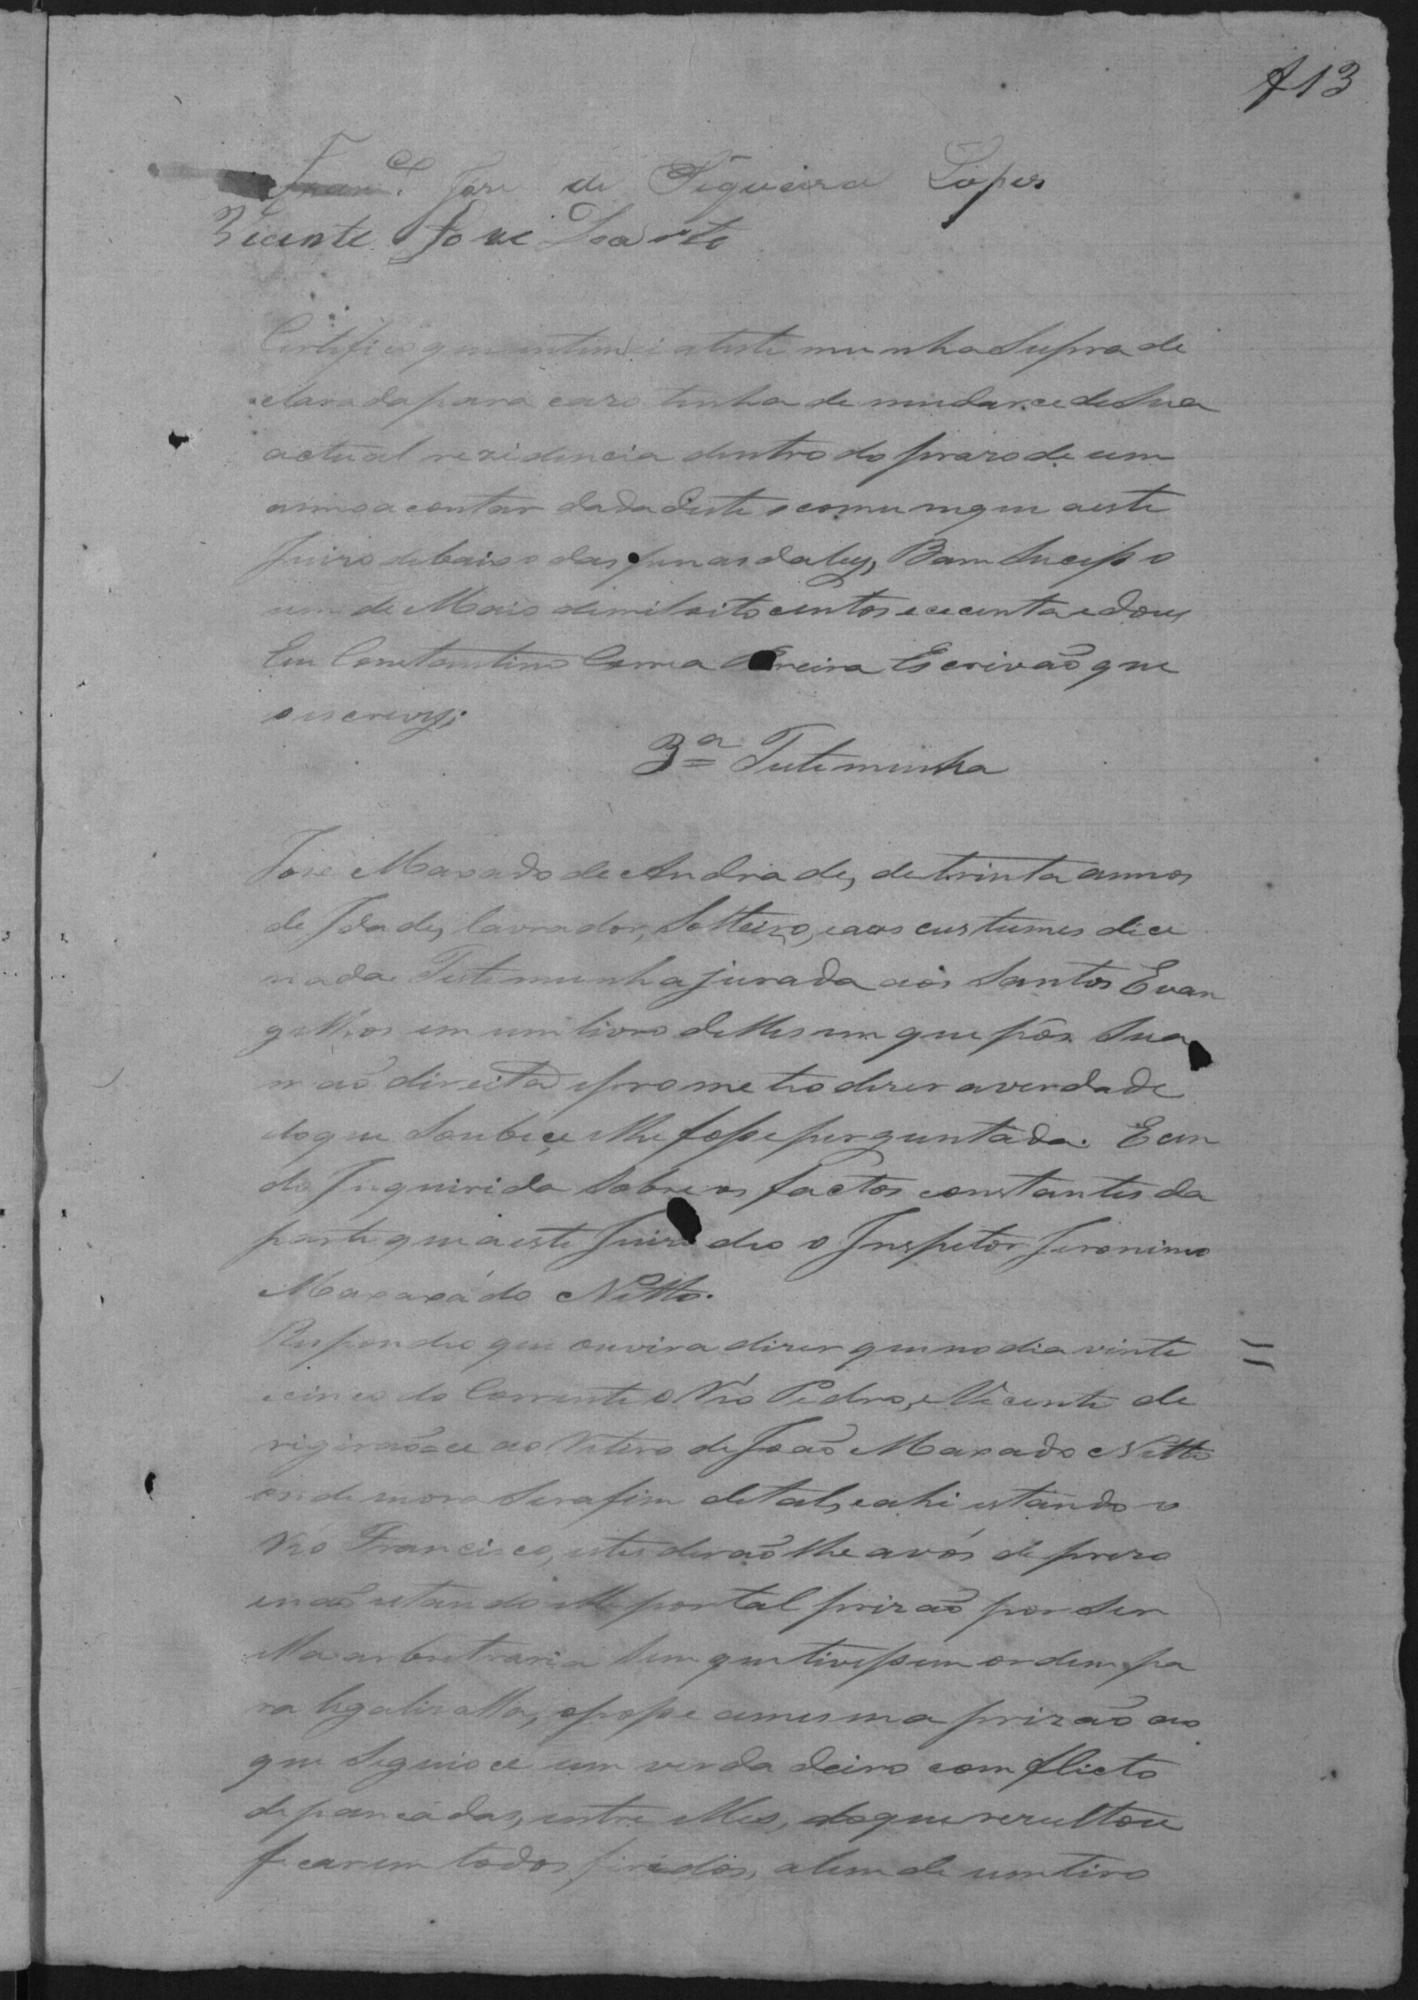 f 13
Franco. José de Figueira Lopes
Vicente José Duarte
Certifico que intimei a teste munha Supra de
clarada para cazo tenha de mudarce de Sua
actual rezidencia dentro do prazo de um
anno a contar da data deste o comunique a este
Juizo debaixo das penas da ley, Bom Sucesso
um de Maio de mil oito centos e cecenta e dous
Eu Constantino Correa Pereira Escrivão que
o escrevy;
3ª Testemunha
José Maxado de Andrade, de trinta annos
de Idade, lavrador, Solteiro, e aos custumes dice
nada Testemunha jurada aos Santos Evan
gelhos em um livro delles em que pôs Sua
mão direita e prometeo dizer a verdade
do que Soubece e lhe fosse perguntada. E cen
do Inquirida Sobre os factos constantes da
parte que a este Juizo deo o Inspetor Jeronimo
Maxado Netto.
Respondeo que ouvira dizer que no dia vinte
e cinco do Corrente o Réo Pedro, e Vicente de
rigirãoce ao Retiro de João Maxado Netto
onde mora Serafim de tal, e ahi estando o
Réo Francisco, estes derão lhe a vós de prezo
e não estando elle por tal prizão por Ser
ella arbetraria Sem que tivessem ordem pa
ra legalizalla, opôsse a mesma prizão ao
que Seguioce um verda deiro com flicto
de pancadas, entre elles, do que rezultou
ficarem todos firidos, alem de um tiro